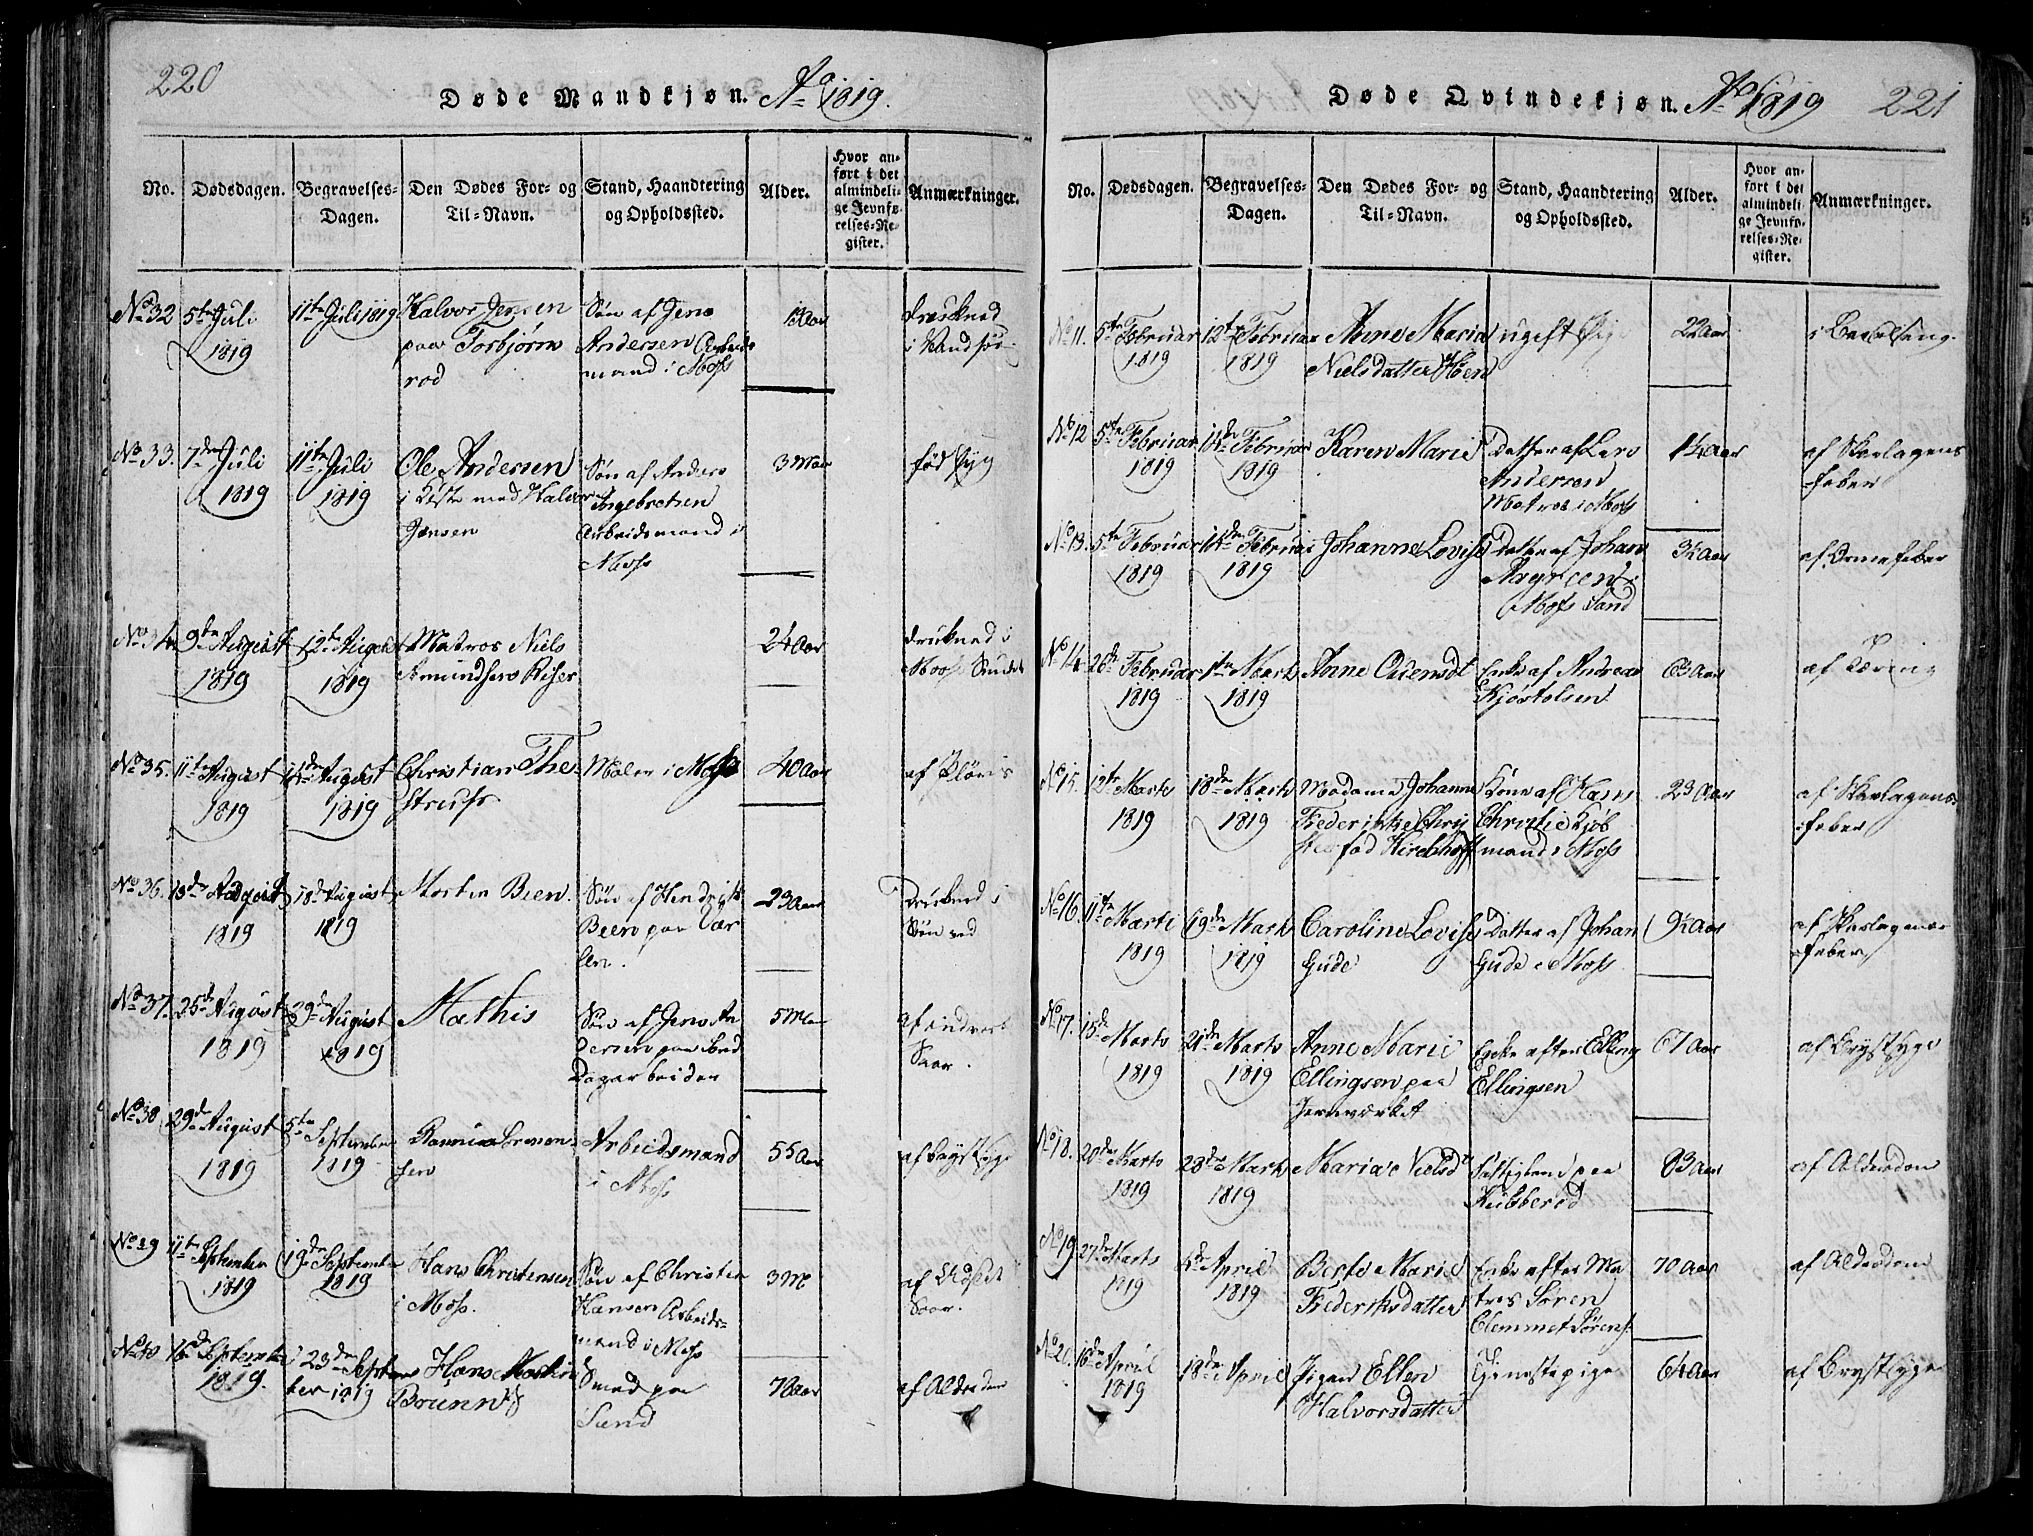 220
Døde Mandkjøn. Ao 1819.
No. Dødsdagen. Begravelses-Dagen. Den Dødes For- og Til-Navn. Stand, Haandtering og Opholdssted. Alder. Hvor anført i det almindelige Jevnførelses-Register. Anmærkninger.
No 32 5te Juli 11te Juli 1819 Halvor Jensen Søn af Jens drukned
1819 paa Torbjørn Andersen Arbeids i Vandsøe
rød mand i Moss
No 33. 7de Juli 11te Juli Ole Andersen Søn af Anders 3 Mdr fød syg
1819 1819 i Kiste med Halvor Ingebretsen
Jensen Arbeidsmand i
Moss
No 34. 9de August 12te August Matros Niels 24 Aar drukned i
1819 1819 Amundsens Riser Moss Sundet
No 35. 11te August 14de August Christian The- Maler i Moss 40 Aar af
1819 1819 strup
No 36. 13de August 18de August Morten Been. Søn af Hendrich 23 Aar Drukned i
1819 1819 Been paa Var Søen ved
len.
No 37. 25de August 29de August Mathis Søn af Jens An 5 M af indvort
1819 1819 dersen paa Saar.
Dagarbeider
No 38 29de August 5te September Sören Arbeidsmand 55 Aar af Brystsyge
1819 1819 sen i Moss
No 39 11te September 19de September Hans Christensen Søn af Christen 3 M af Udslet
1819 1819 i Moss. Hansen Arbeids- Saar.
mand i Moss
No 40 16de September 23de Septem Hans Martin Smed paa 78 Aar af Alderdom
1819. ber 1819 Brunn Sand
Døde Qvindekjøn. Ao 1819 221
No. Dødsdagen. Begravelses-Dagen. Den Dødes For- og Til-Navn. Stand, Haandtering og Opholdssted. Alder. Hvor anført i det almindelige Jevnførelses-Register. Anmærkninger.
No 11. 5te Februar 12te Februar Anne Maria ugift Pige 22 Aar i Barselseng.
1819 1819 Nielsdatter
No 12 5te Februar 14de Februar Karen Marie Datter af Lars 1½ Aar af Skarlagens
1819 1819 Andersen feber
Matros i Moss
No 13. 5te Februar 14de Februar Johanne Lovise Datter af Johan 3½ Aar af Ormefeber
1819 1819 i
Moss Sand
No 14 26de Februar 1te Marts Anne Olensdt Enke af Andreas 63 Aar af Tæring
1819 1819 Kjøstelsen
No 15. 12te Marts 18de Marts Madame Johanne Kone af Hans 23 Aar af Skarlagens
1819 1819 Frederikke Chri Christie Kjøb feber
stie fød Kirchhoff mand i Moss
No 16. 11te Marts 19de Marts Caroline Lovise Datter af Johan 9½ Aar af Skarlagens
1819 1819 Gude Gude i Moss feber
No 17. 15de Marts 21de Marts Anne Marie Enke efter Elling 67 Aar af Brystsyge
1819 1819 Ellingsen paa Ellingsen
Jernværket
No 18. 20de Marts 28de Marts Maria Nielsd Fattiglem paa 83 Aar af Alderdom
1819 1819 Kubberød
No 19. 27de Marts April Berte Marie Enke efter Ma 70 Aar af Alderdom
1819 1819 Frederiksdatter tros Søren
Clemmet Sørens.
No 20. 16de April 18de April Pigen Ellen Tjenestepige 64 Aar af Brystsyge
1819 Halvorsdatter